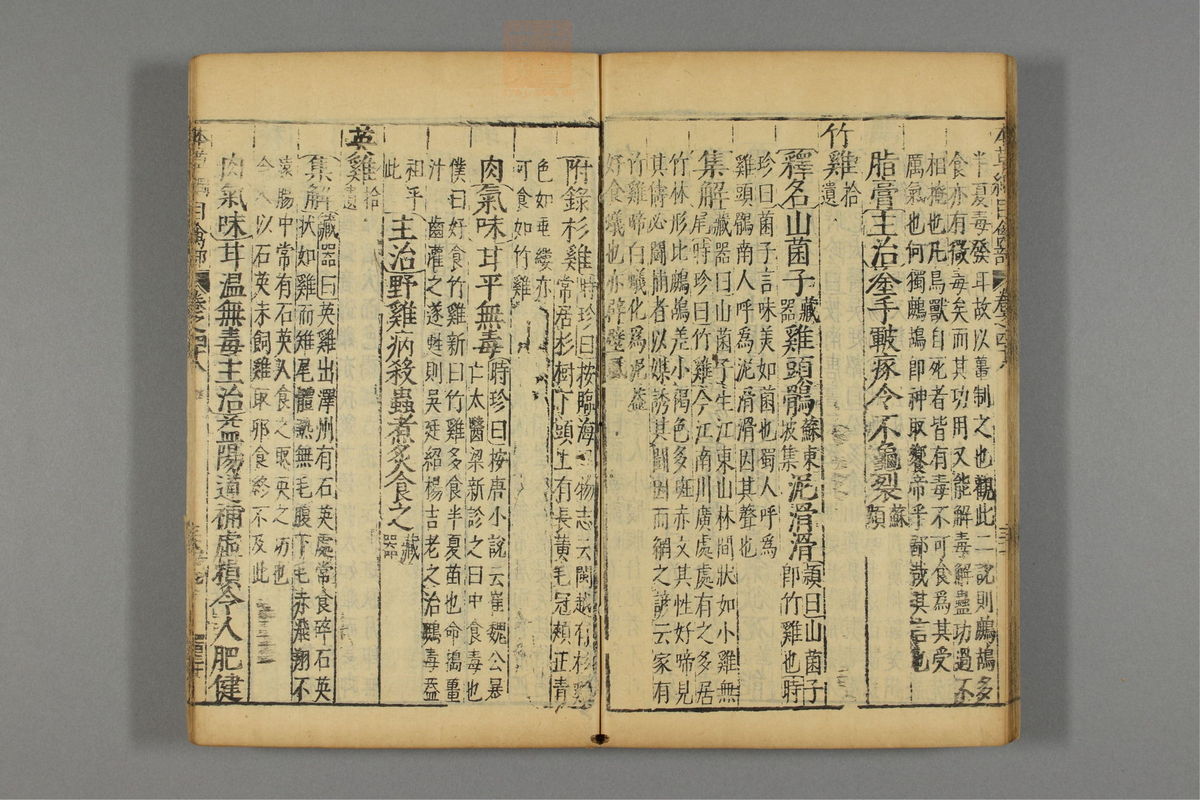 半夏毒發耳故以薑制之也觀此二說則鷓鴣多
食亦有微毒矣而其功用又能解毒解蠱功過不
相掩也凡鳥獸自死者皆有毒不可食為其受
厲氣也何獨鷓鴣即神取饗帝乎鄙哉其言也
脂膏主治塗手皸瘃令不龜裂蘇頌
竹雞拾遺
釋名山菌子藏器雞頭鶻蘇東坡集泥滑滑頴曰山菌子即竹雞也時
珍曰菌子言味美如菌也蜀人呼為
雞頭鶻南人呼為泥滑滑因其聲也
集解藏器曰山菌子生江東山林間狀如小雞無
尾時珍曰竹雞今江南川廣處處有之多居
竹林形比鷓鴣差小褐色多斑赤文其性好啼見
其儔必鬭捕者以媒誘其鬭因而網之諺云家有
竹雞啼白蟻化為泥蓋
好食蟻也亦辟壁虱
附錄杉雞時珍曰按臨海物志云閩越有杉雞
常居杉樹下頭上有長黃毛冠頰正青
色如垂縷亦
可食如竹雞
肉氣味甘平無毒時珍曰按唐小說云崔魏公暴
亡太醫梁新診之曰中食毒也
僕曰好食竹雞新曰竹雞多食半夏苗也命擣薑
汁齒灌之遂甦則吳廷紹楊吉老之治鷓毒蓋
祖乎
此
主治野雞病殺蟲煮炙食之藏器
英雞拾遺
集解藏器曰英雞出澤州有石英處常食碎石英
狀如雞而雉尾體熱無毛腹下毛赤飛翔不
遠腸中常有石英人食之取英之功也
今人以石英末飼雞取卵食終不及此
肉氣味甘温無毒主治益陽道補虛損令人肥健